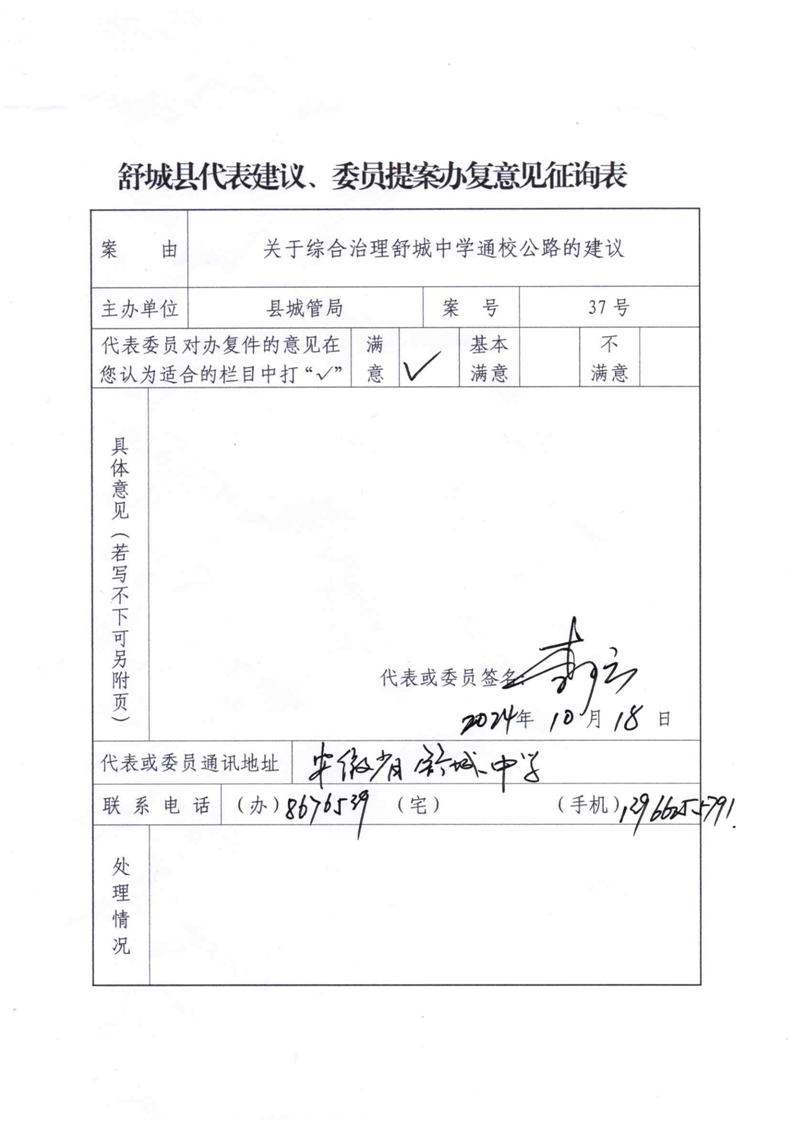 舒城县代表建议、委员提案办复意见征询表
案 由 关于综合治理舒城中学通校公路的建议
主办单位 县城管局 案 号 37号
代表委员对办复件的意见在您认为适合的栏目中打“√” 满意 √ 基本满意 不满意
具体意见（若写不下可另附页）
代表或委员签名：
2024年 10月 18日
代表或委员通讯地址 安徽省舒城中学
联系电话 （办）8676539 （宅） （手机）13966255791.
处理情况